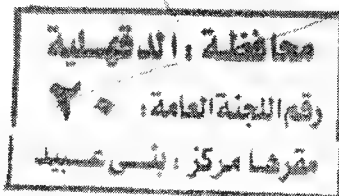 محافظة : الدقهلية
رقم اللجنة العامة : ٢٠
مقرها مركز : بنى عبيد